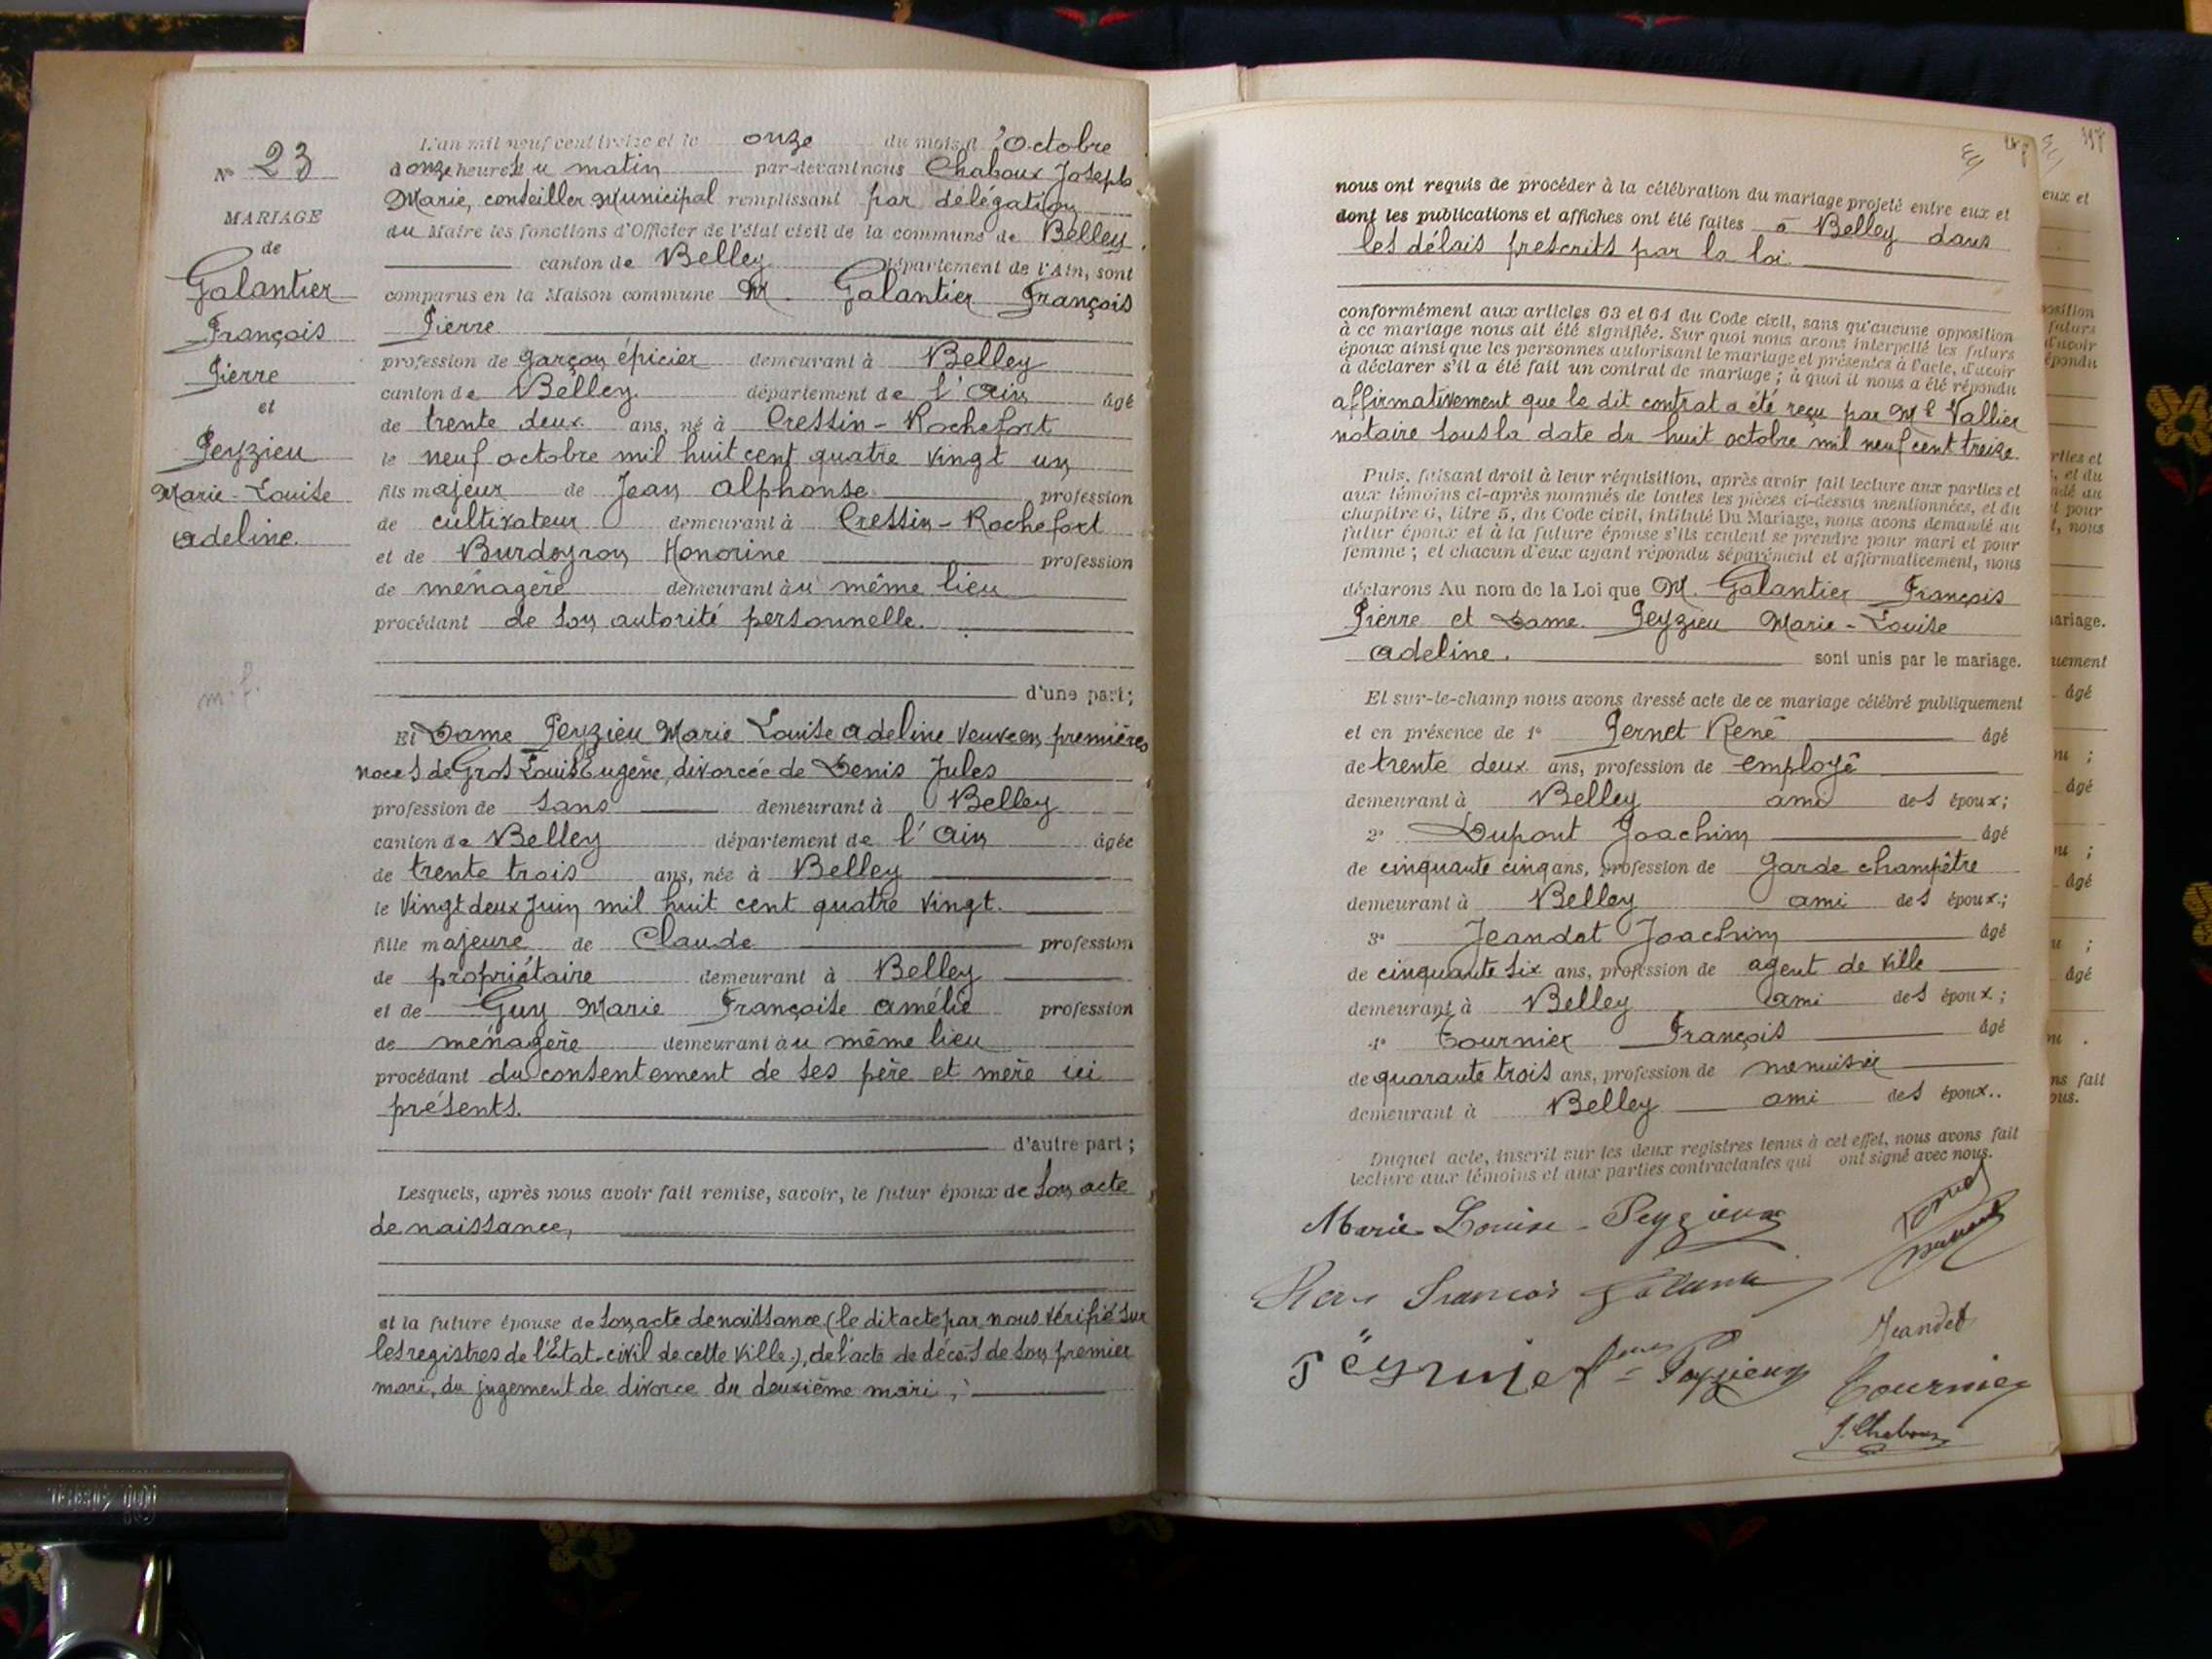 N° 23
MARIAGE
de
Galantier
François
Pierre
et
Peyzieu
Marie-Louise
Adeline.
m.f.
L'an mil neuf cent treize et le onze du mois d'Octobre
à onze heures du matin par-devant nous Chaboux Joseph
Marie, conseiller Municipal remplissant par délégation
du Maire les fonctions d'Officier de l'état civil de la commune de Belley,
canton de Belley département de l'Ain, sont
comparus en la Maison commune Mr. Galantier François
Pierre
profession de garçon épicier demeurant à Belley
canton de Belley département de l'Ain âgé
de trente deux ans, né à Cressin-Rochefort
le neuf octobre mil huit cent quatre vingt un
fils majeur de Jean Alphonse profession
de cultivateur demeurant à Cressin-Rochefort
et de Burdeyron Honorine profession
de ménagère demeurant au même lieu
procédant de son autorité personnelle.
d'une part;
Et Dame Peyzieu Marie Louise Adeline veuve en premières
noces de Gros Louis Eugène, divorcée de Denis Jules
profession de sans demeurant à Belley
canton de Belley département de l'Ain âgée
de trente trois ans, née à Belley
le vingt deux Juin mil huit cent quatre vingt.
fille majeure de Claude profession
de propriétaire demeurant à Belley
et de Guy Marie Françoise Amélie profession
de ménagère demeurant au même lieu
procédant du consentement de ses père et mère ici
présents.
d'autre part;
Lesquels, après nous avoir fait remise, savoir, le futur époux de son acte
de naissance,
et la future épouse de son acte de naissance (le dit acte par nous vérifié sur
les registres de l'Etat-civil de cette ville.), de l'acte de décès de son premier
mari, du jugement de divorce du deuxième mari,
nous ont requis de procéder à la célébration du mariage projeté entre eux et
dont les publications et affiches ont été faites à Belley dans
les délais prescrits par la loi
conformément aux articles 63 et 64 du Code civil, sans qu'aucune opposition
à ce mariage nous ait été signifiée. Sur quoi nous avons interpellé les futurs
époux ainsi que les personnes autorisant le mariage et présentes à l'acte, d'avoir
à déclarer s'il a été fait un contrat de mariage; à quoi il nous a été répondu
affirmativement que le dit contrat a été reçu par Me Vallier
notaire sous la date du huit octobre mil neuf cent treize.
Puis, faisant droit à leur réquisition, après avoir fait lecture aux parties et
aux témoins ci-après nommés de toutes les pièces ci-dessus mentionnées, et du
chapitre 6, titre 5, du Code civil, intitulé Du Mariage, nous avons demandé au
futur époux et à la future épouse s'ils veulent se prendre pour mari et pour
femme; et chacun d'eux ayant répondu séparément et affirmativement, nous
déclarons Au nom de la Loi que M. Galantier François
Pierre et Dame. Peyzieu Marie-Louise
Adeline. sont unis par le mariage.
Et sur-le-champ nous avons dressé acte de ce mariage célébré publiquement
et en présence de 1° Pernet René âgé
de trente deux ans, profession de employé
demeurant à Belley ami des époux;
2° Dupont Joachim âgé
de cinquante cinq ans, profession de garde champêtre
demeurant à Belley ami des époux;
3° Jeandet Joachim âgé
de cinquante six ans, profession de agent de ville
demeurant à Belley ami des époux;
4° Tournier François âgé
de quarante trois ans, profession de menuisier
demeurant à Belley ami des époux..
Duquel acte, inscrit sur les deux registres tenus à cet effet, nous avons fait
lecture aux témoins et aux parties contractantes qui ont signé avec nous.
Marie Louise Peyzieux
Jeandet
Peyzieux
Tournier
J. Chaboux
eux et
position
futurs
d'avoir
épondu
rties et
, et du
ndé au
t pour
t, nous
ariage.
uement
âgé
âgé
âgé
âgé
ns fait
ous.